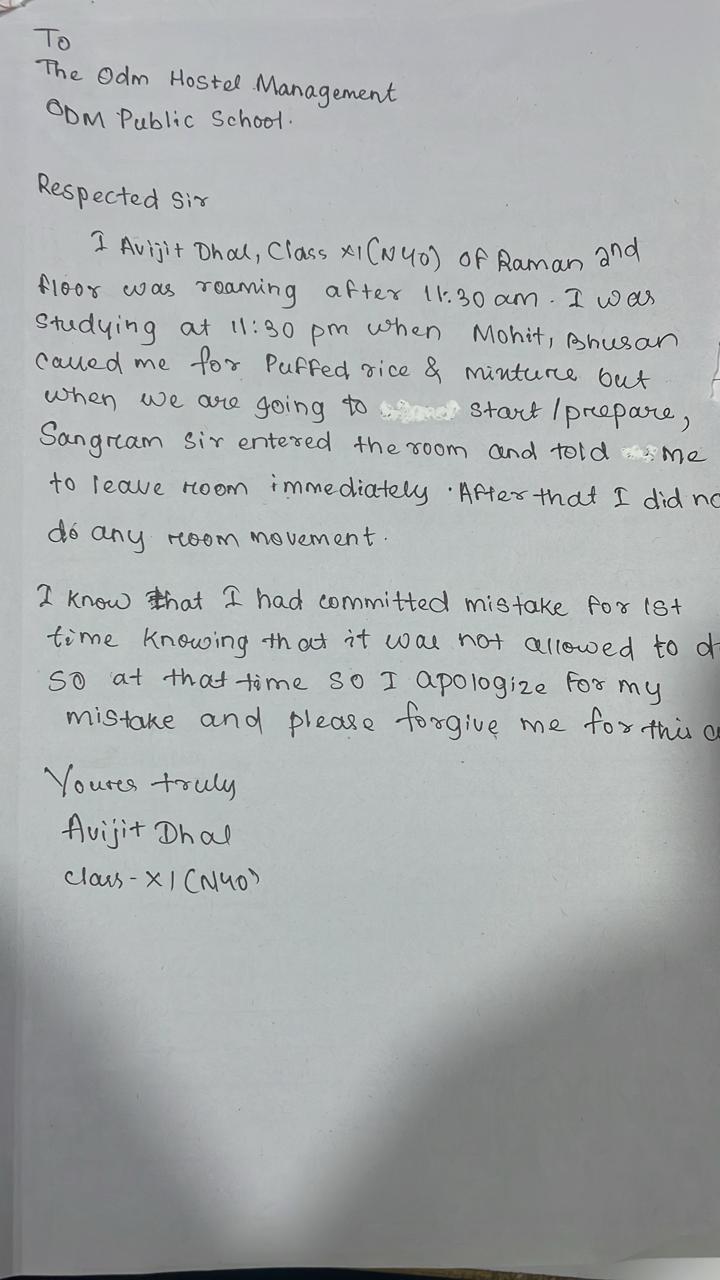 To
The Odm Hostel Management
ODM Public School.
Respected Sir
I Avijit Dhal, Class XI(N40) of Raman 2nd
floor was roaming after 11:30 am. I was
Studying at 11:30 pm when Mohit, Bhusan
called me for Puffed rice & minture but
when we are going to start/prepare,
Sangram Sir entered the room and told me
to leave room immediately. After that I did no
do any room movement.
I know that I had committed mistake for 1st
time knowing that it was not allowed to d
so at that time so I apologize for my
mistake and please forgive me for this
Yours truly
Avijit Dhal
Class-XI(N40)